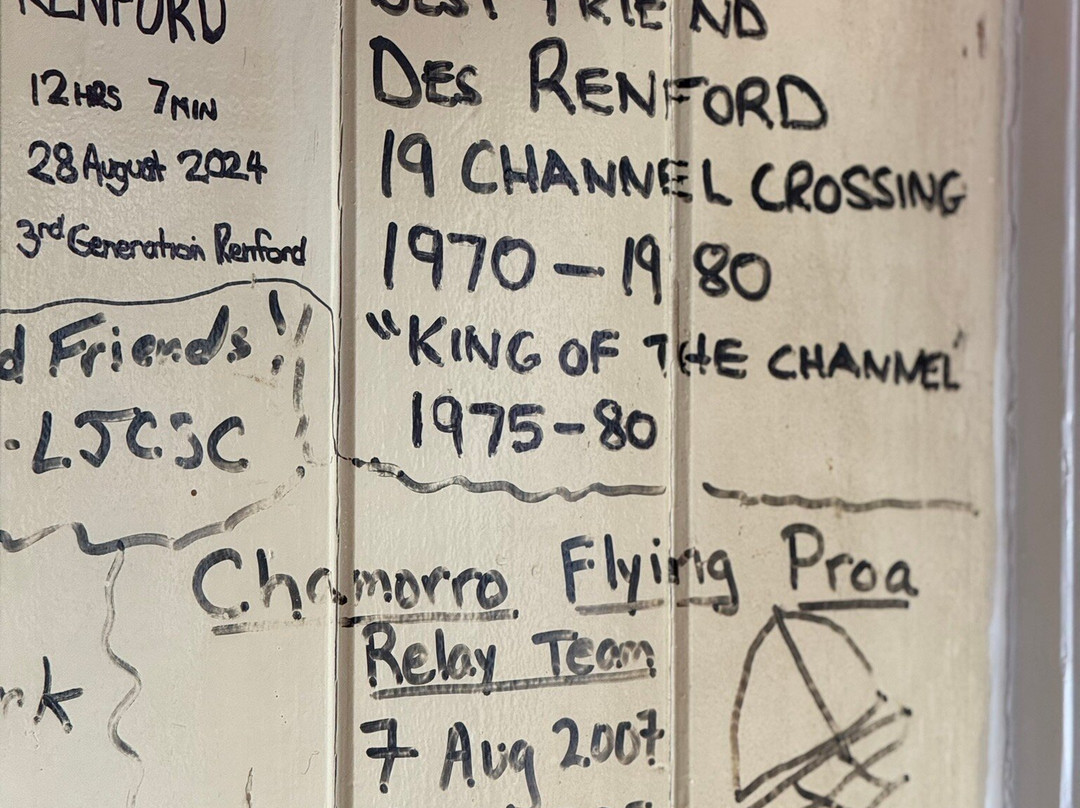 RENFORD
12 HRS 7 MIN
28 August 2024
3rd Generation Renford
d Friends!
. LJCSC
BEST FRIEND
DES RENFORD
19 CHANNEL CROSSING
1970 – 19 80
"KING OF THE CHANNEL"
1975 – 80
Chamorro Flying Proa
Relay Team
7 Aug 2007
nk